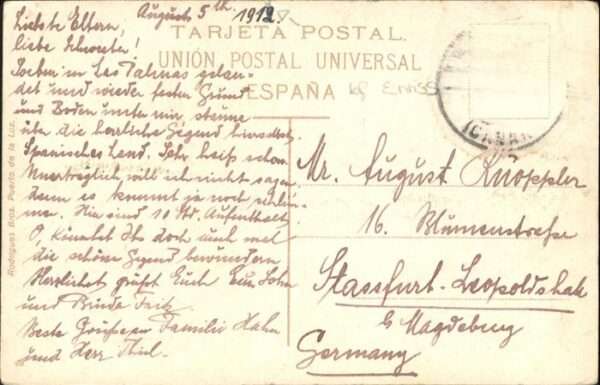 August 5th 1912
TARJETA POSTAL
UNIÓN POSTAL UNIVERSAL
ESPAÑA
Liebste Eltern,
liebe Schwester!
Soeben in Las Palmas gelan-
det und wieder festen Grund
und Boden unter mir, staune
über die herrliche Gegend
Spanisches Land. Sehr heiß schon
Unerträglich will ich nicht sagen,
denn es kommt ja noch schlim-
mer. Hier sind 10 Std. Aufenthalt
O, könntet Ihr doch auch mal
die schöne Gegend bewundern
Herzlichst grüßt Euch Euer Sohn
und Bruder Fritz
Beste Grüße an Familie Hahn
und Herr Thiel.
Mr. August Knoppler
16. Blumenstraße
Stassfurt-Leopoldshall
b Magdeburg
Germany
Rodrigues Bros Puerto de la Luz.
(CANAR